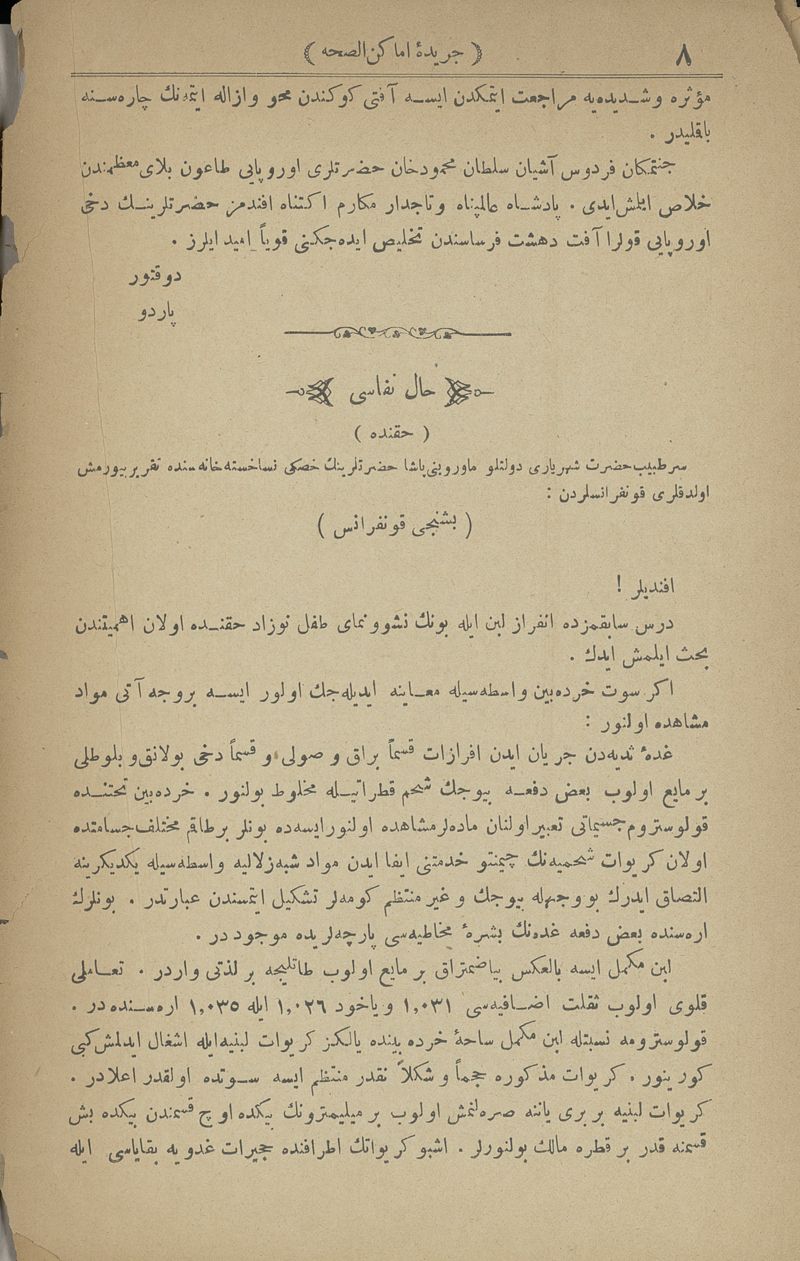 ٨
( جریدهٔ اماکن الصحه )
مؤثره و شدیدیه مراجعت ایتمکدن ایسه آفتی کوکندن محو و ازاله ایتمه‌نك چاره‌سنه
باقلیدر .
جنتمکان فردوس آشیان سلطان محمودخان حضرتلری اوروپایی طاعون بلای معظمندن
خلاص ایلمش ایدی . پادشاه عالمپناه و تاجدار مکارم اکتناه افندمز حضرتلرینك دخی
اوروپایی قولرا آفت دهشت فرساسندن تخلیص ایده‌جکنی قویاً امید ایلرز .
دوقتور
پاردو
حال نفاسی
( حقنده )
سرطبیب حضرت شهریاری دولتلو ماورویی پاشا حضرتلرینك خصکی نساخسته‌خانه‌سنده تقریر بیورمش
اولدقلری قونفرانسلردن :
( بشنجی قونفرانس )
افندیلر !
درس سابقمزده انفراز لبن ایله بونك نشوونمای طفل نوزاد حقنده اولان اهمیتندن
بحث ایلمش ایدك .
اکر سوت خرده‌بین واسطه‌سیله معاینه ایدیله‌جك اولور ایسه بروجه آتی مواد
مشاهده اولنور :
غدهٔ ثدیه‌دن جریان ایدن افرازات قسماً براق و صولی و قسماً دخی بولانق و بلوطلی
بر مایع اولوب بعض دفعه بیوجك شحم قطراتیله مخلوط بولنور . خرده‌بین تحتنده
قولوستروم جسیماتی تعبیر اولنان ماده‌لر مشاهده اولنور ایسه‌ده بونلر برطاقم مختلف جسامتده
اولان کریوات شحمیه‌نك چیمنتو خدمتنی ایفا ایدن مواد شبه‌زلالیه واسطه‌سیله یکدیکرینه
التصاق ایدرك بو وجهله بیوجك و غیر منتظم کومه‌لر تشکیل ایتمسندن عبارتدر . بونلرك
اره‌سنده بعض دفعه غده‌نك بشرهٔ مخاطیه‌سی پارچه‌لریده موجوددر .
لبن مکمل ایسه بالعکس بیاضمتراق بر مایع اولوب طاتلیجه بر لذتی واردر . تعاملی
قلوی اولوب ثقلت اضافیه‌سی ١,٠٣١ و یاخود ١,٠٢٦ ایله ١,٠٣٥ اره‌سنده‌در .
قولوسترومه نسبتله لبن مکمل ساحهٔ خرده‌بینده یالکز کریوات لبنیه‌ایله اشغال ایدلمش کبی
کورینور . کریوات مذکوره حجماً و شکلاً نقدر منتظم ایسه سوتده اولقدر اعلادر .
کریوات لبنیه بربری یاننه صره‌لنمش اولوب بر میلیمترونك بیکده اوچ قسمندن بیکده بش
قسمنه قدر بر قطره مالك بولنورلر . اشبو کریواتك اطرافنده حجیرات غدویه بقایاسی ایله